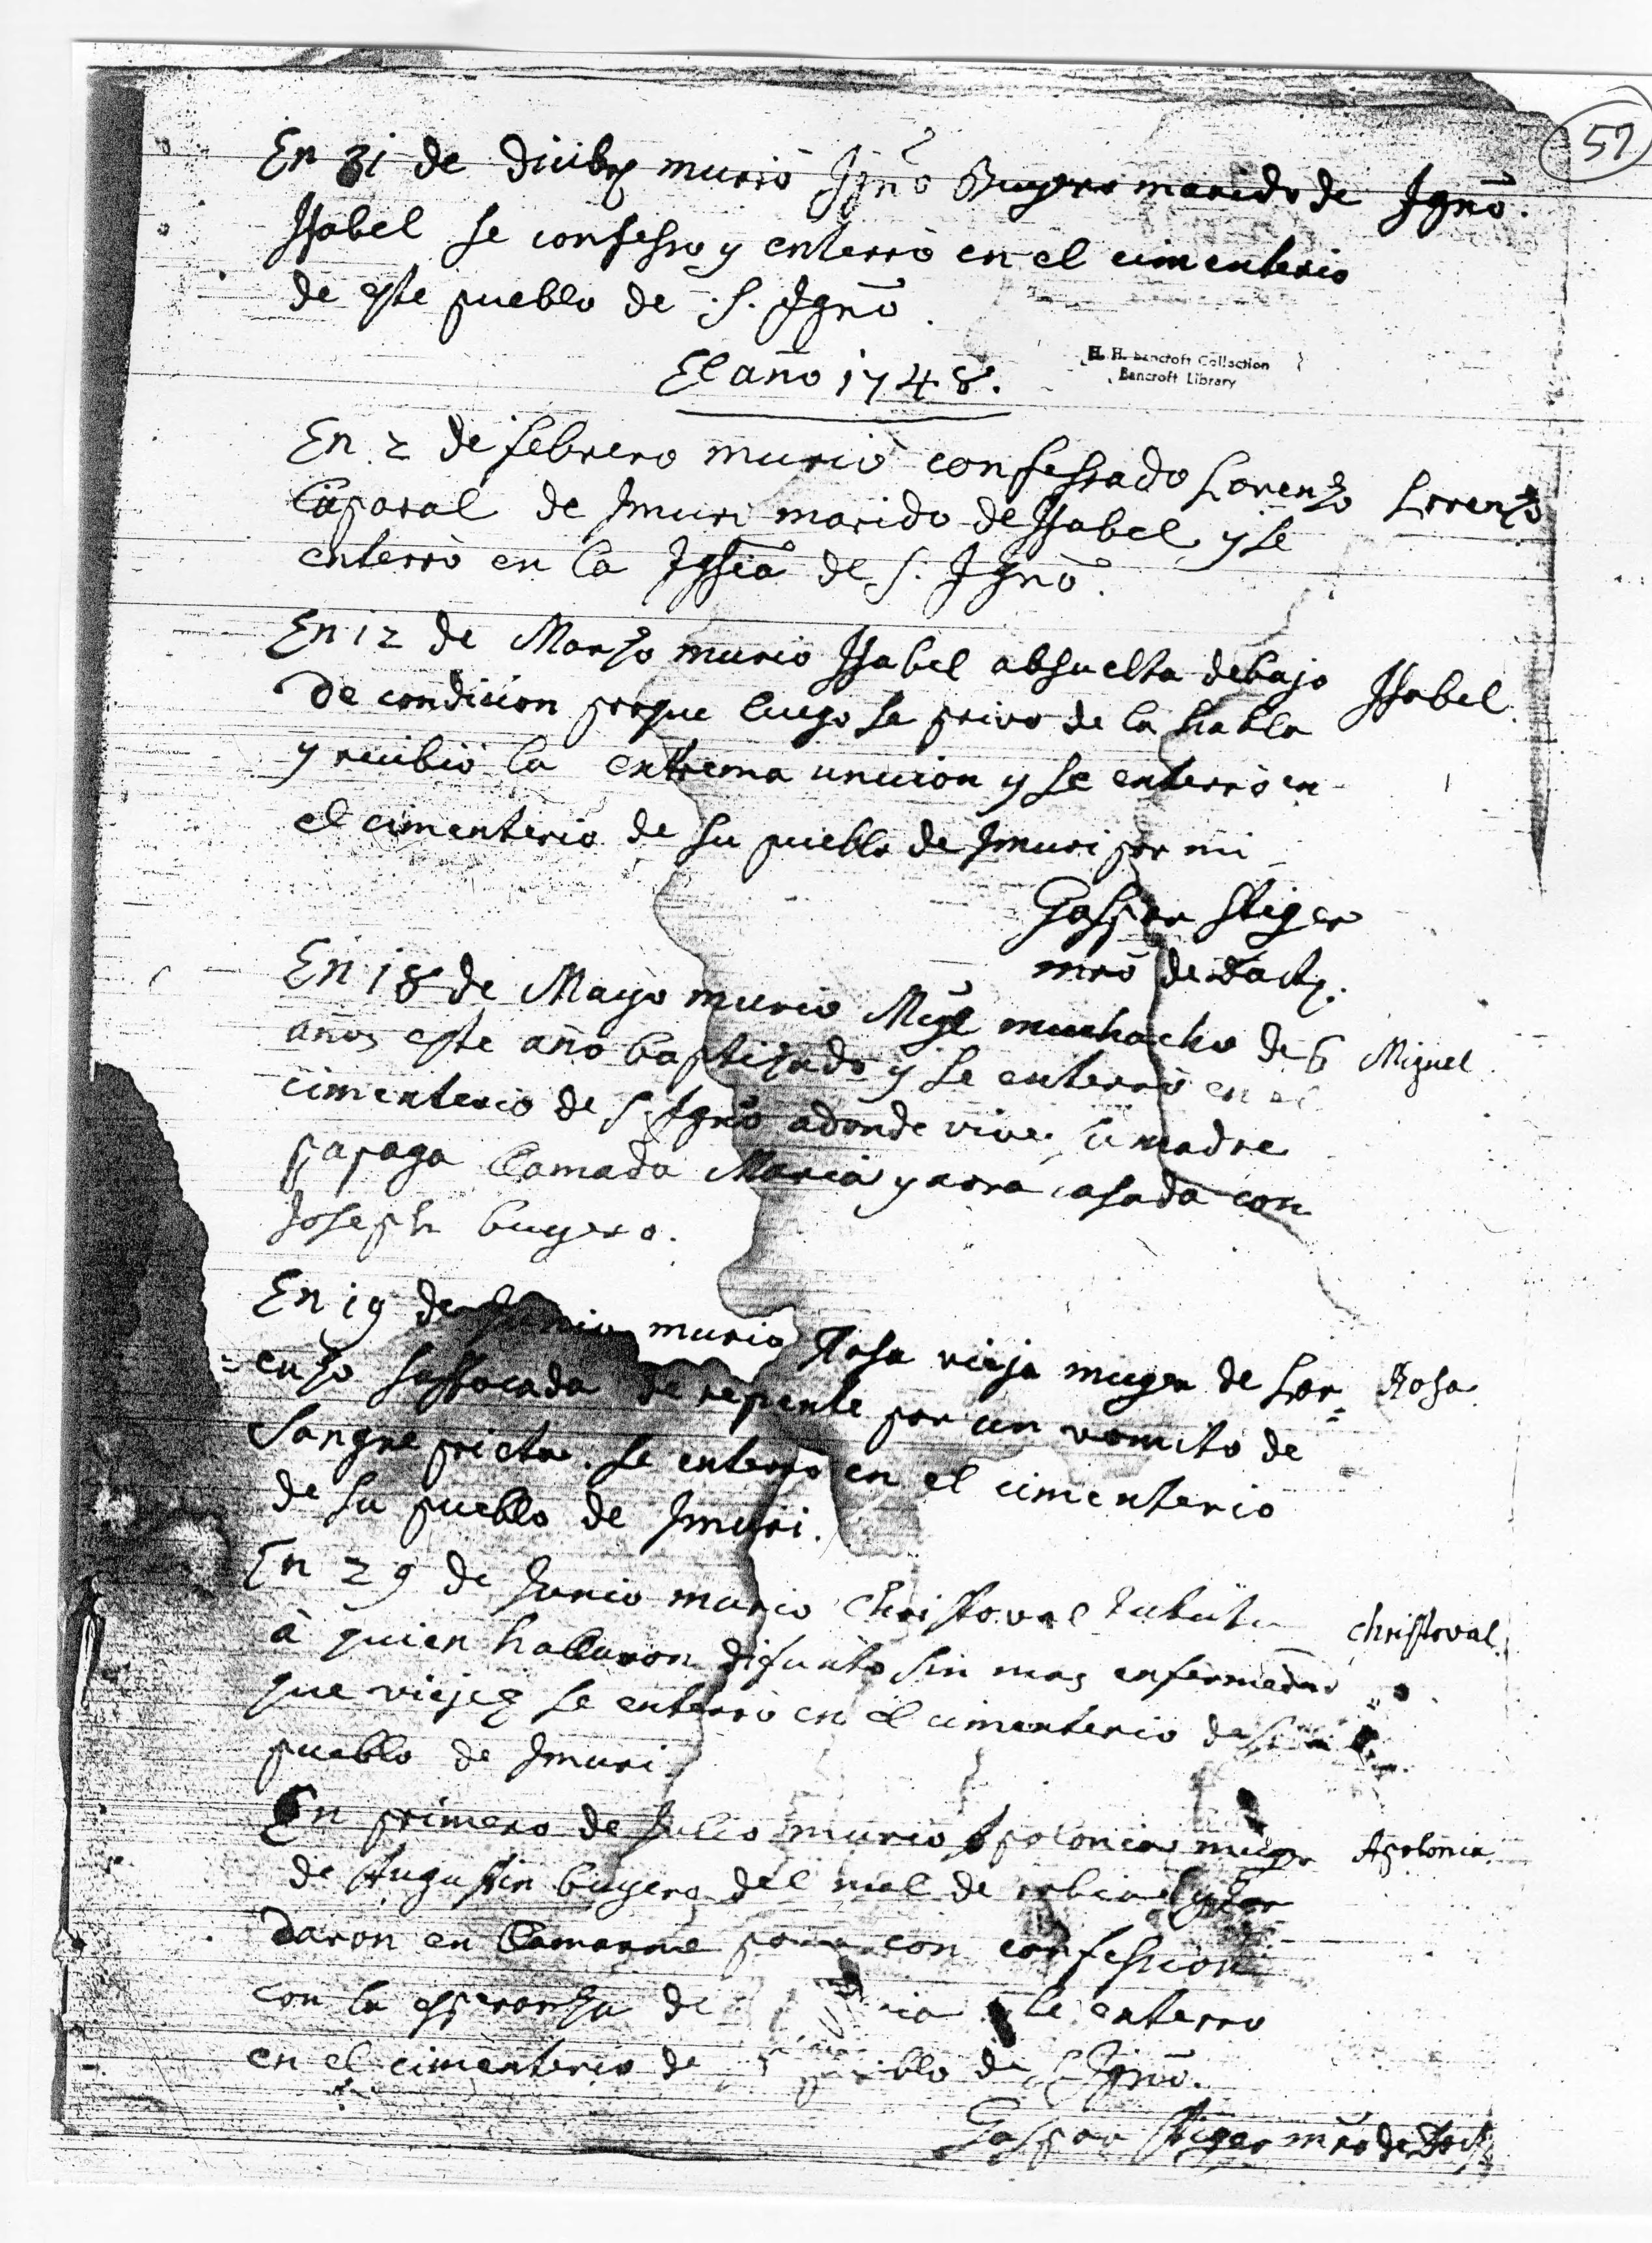 57
En 31 de Dicibre murió Ignõ Buyero marido de Ignõ.
Isabel se confesso y enterrò en el cimenterio
de este pueblo de S. Ignõ.
H. H. Bancroft Collection
Bancroft Library
El año 1748.
En 2 de febrero murió confessado Lorenzo Lorenzo
Caporal de Imuri marido de Isabel y se
enterrò en la Iglia de S. Ignõ.
En 12 de Marzo murio Isabel absuelta debajo Isabel
De condicion porque luego se privo de la habla
y recibiò la extrema uncion y se enterrò en
el cimenterio de su pueblo de Imuri por mi
Gaspar Stiger
mrõ de doctr.
En 18 de Mayo murio Migl muchacho de 6 Miguel
años este año baptizado y se enterrò en el
cimenterio de S. Ignõ adonde vive su madre
papaga llamada Maria y aora casada con
Joseph buyero.
En 19 de Junio murio Rosa vieja muger de Lor= Rosa.
=enzo suffocada de repente por un vomito de
Sangre prieta. se enterrò en el cimenterio
de su pueblo de Imuri.
En 29 de Junio murio Christoval Christoval
à quien hallaron difunto sin mas enfermedad
que viejez se enterrò en el cimenterio de su
pueblo de Imuri.
En primero de Julio murio Apolonia muger Apolonia
de Augustin buyero del mal de rabia y
daron en llamarme con confession
con la esperanza de se enterro
en el cimenterio de pueblo de S. Ignõ.
Gaspar Stiger mrõ de doctr.